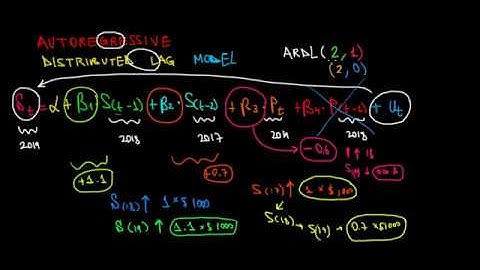 AUTOREGRESSIVE
DISTRIBUTED LAG MODEL ARDL(2,1)
(2,0)
St = α + β1 S(t-1) + β2. S(t-2) + β3. Pt + β4. P(t-1) + Ut
2019 2018 2017 2019 2018
-0.6
+1.1 +0.7
S(18)↑ 1 x $1000 S(17)↑ 1 x $1000
S(19)↑ 1.1 x $1000 S(18) → S(19) → 0.7 x $1000